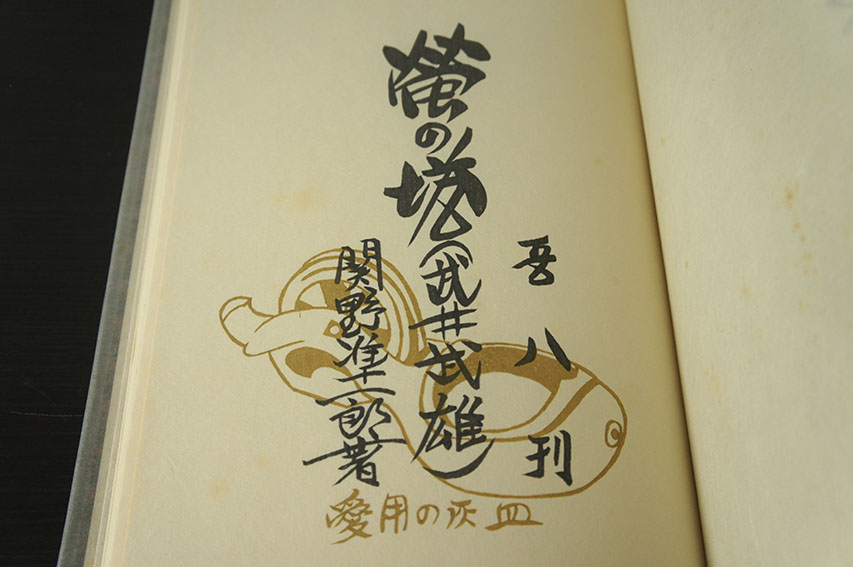 吾八刊
螢の塔(武井武雄)
関野凖一郎著
愛用の灰皿